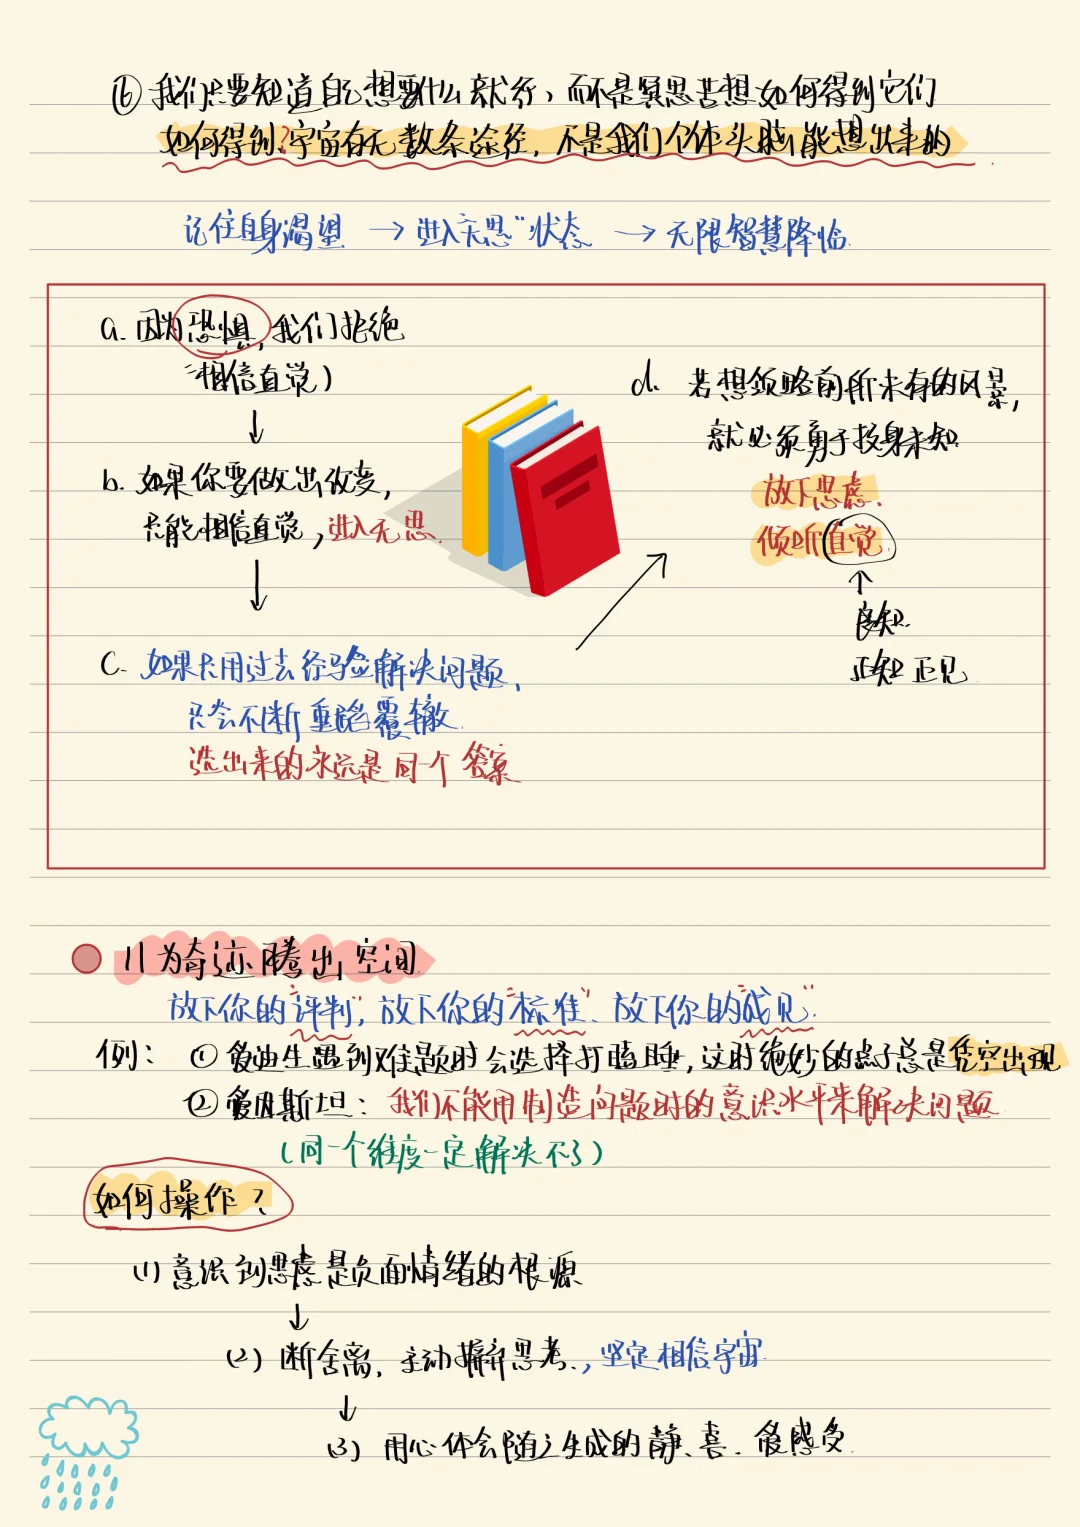 ⑥ 我们只要知道自己想要什么就行，而不是冥思苦想如何得到它们
如何得到？宇宙有无数条途径，不是我们个体头脑能想出来的
记住自身渴望 → 进入"无思"状态 → 无限智慧降临
a. 因为恐惧，我们拒绝
相信直觉）
↓
b. 如果你要做出改变，
只能相信直觉，进入无思
↓
c. 如果只用过去经验解决问题，
只会不断重蹈覆辙
造出来的永远是同个答案
d. 若想领略前所未有的风景，
就必须勇于投身未知
放下思虑、
倾听直觉
↑
良知
正知正见
11 为奇迹腾出空间
放下你的"评判"，放下你的"标准"、放下你的"成见"
例：① 爱迪生遇到难题时会选择打瞌睡，这时绝妙的点子总是凭空出现
② 爱因斯坦：我们不能用制造问题时的意识水平来解决问题
（同一个维度一定解决不了）
如何操作？
(1) 意识到思虑是负面情绪的根源
↓
(2) 断舍离，主动摒弃思考，坚定相信宇宙
↓
(3) 用心体会随之生成的静、喜、爱感受